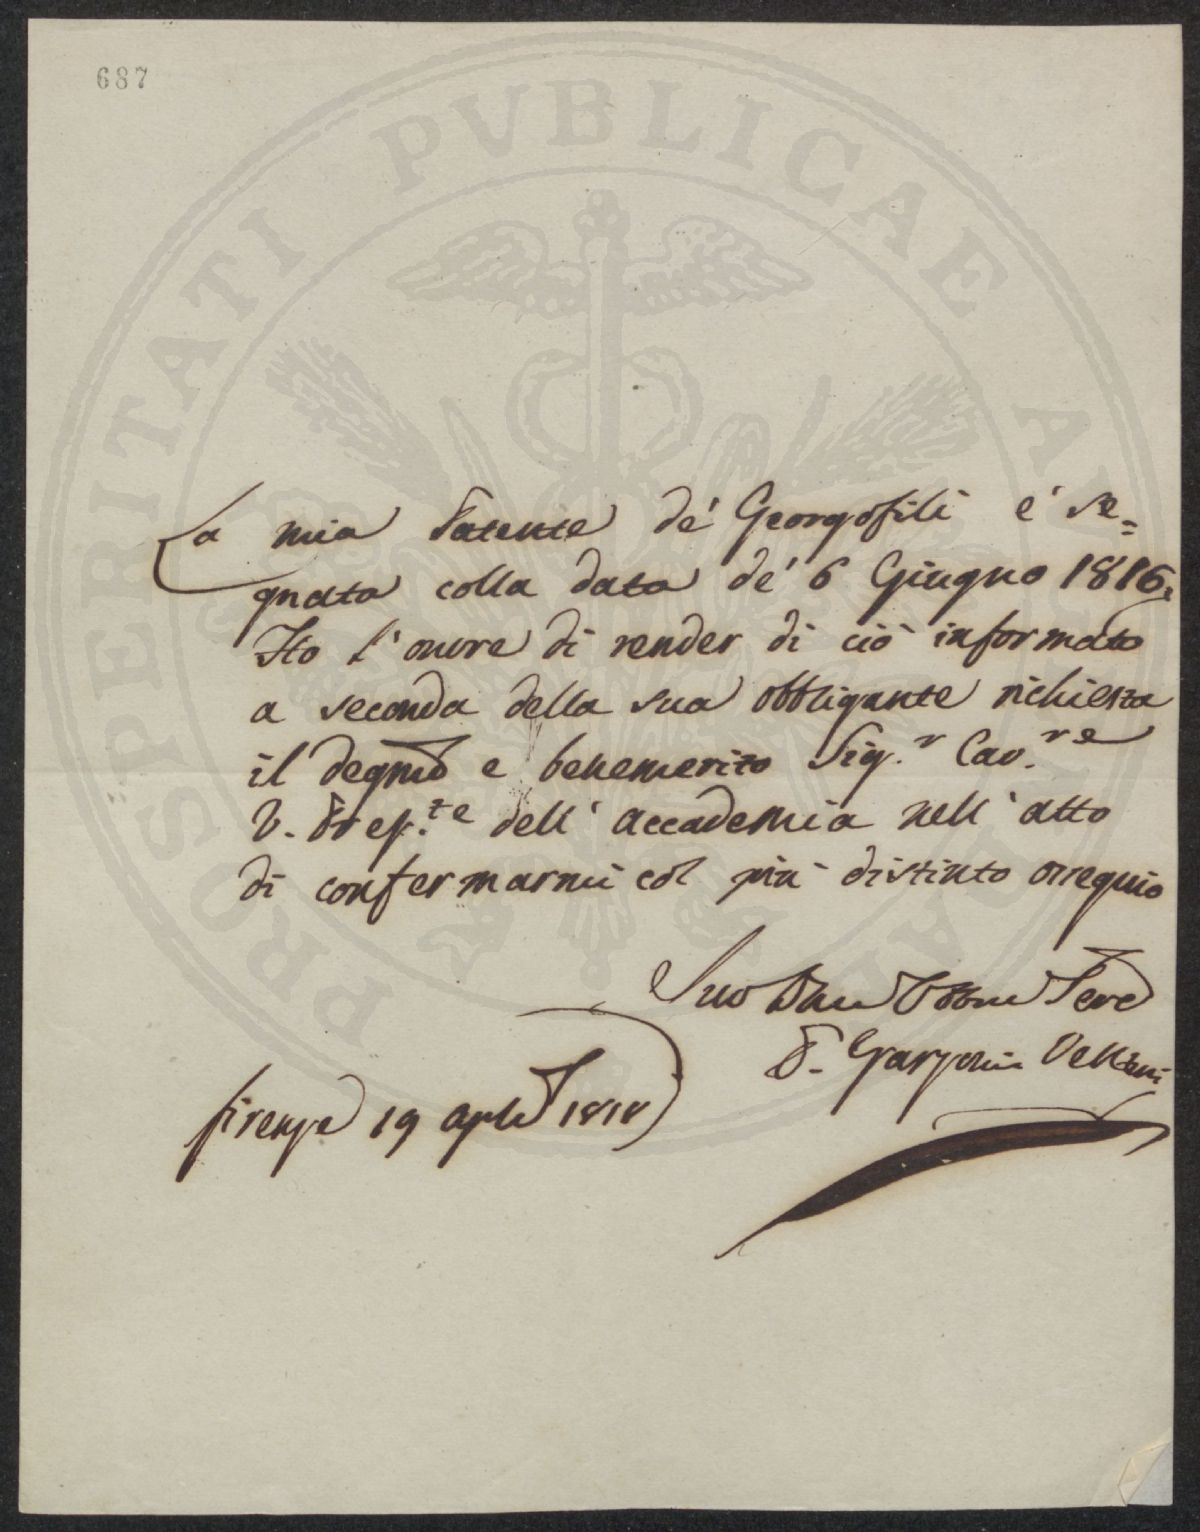 687
PROSPERITATI PVBLICAE AVGENDAE
La mia Patente de' Georgofili é se=
gnata colla data de' 6 Giugno 1816.
Ho l'onore di render di ciò informato
a seconda della sua obbligante richiesta
il degnmo e benemerito Sig.r Cav.re
V. Presi.te dell' Accademia nell' atto
di confermarmi col più distinto ossequio
Suo Obbmo Serre
P. Garzoni Venturi
Firenze 19 Aple 1818